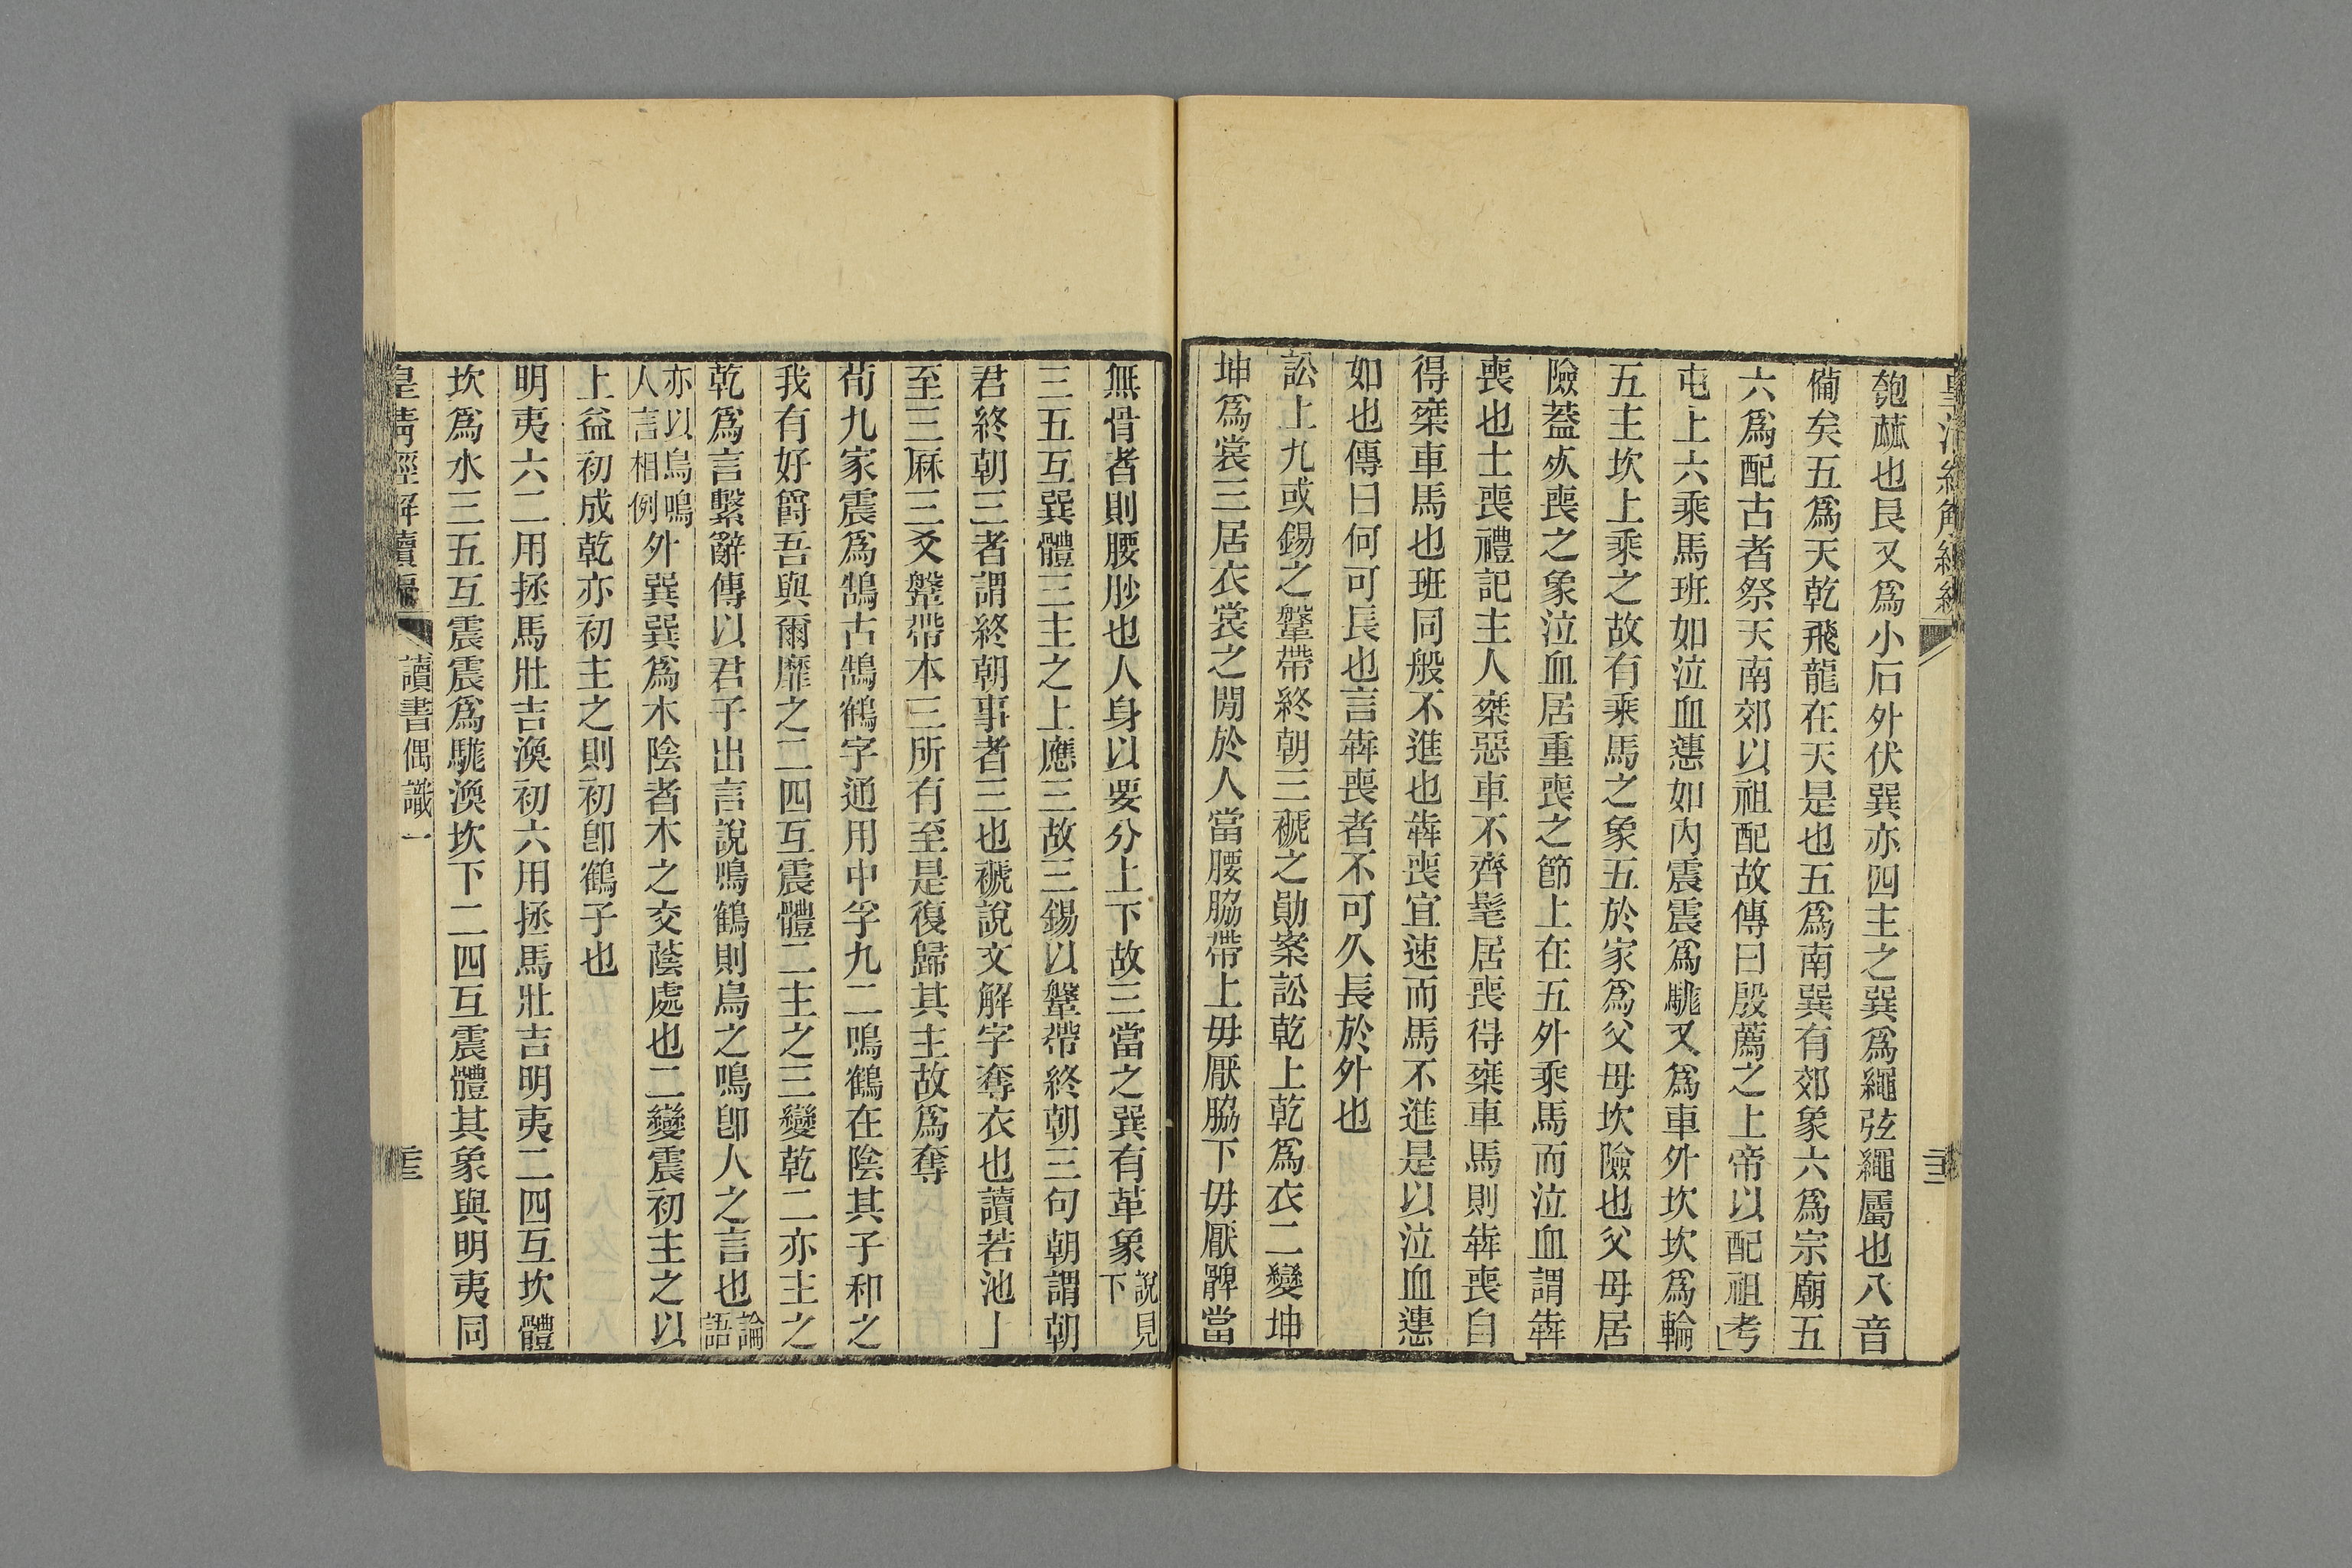 匏蓏也艮又爲小石外伏巽亦四主之巽爲繩弦繩屬也八音
備矣五爲天乾飛龍在天是也五爲南巽有郊象六爲宗廟五
六爲配古者祭天南郊以祖配故傳曰殷薦之上帝以配祖考
屯上六乘馬班如泣血漣如內震震爲駣又爲車外坎坎爲輪
五主坎上乘之故有乘馬之象五於家爲父母坎險也父母居
險蓋疾喪之象泣血居重喪之節上在五外乘馬而泣血謂犇
喪也士喪禮記主人椉惡車不齊髦居喪得椉車馬則犇喪自
得椉車馬也班同般不進也犇喪宜速而馬不進是以泣血漣
如也傳曰何可長也言犇喪者不可久長於外也
訟上九或錫之鞶帶終朝三褫之勛案訟乾上乾爲衣二變坤
坤爲裳三居衣裳之閒於人當腰脇帶上毋厭脇下毋厭髀當
無骨者則腰䏚也人身以要分上下故三當之巽有革象說見
下
三五互巽體三主之上應三故三錫以鞶帶終朝三句朝謂朝
君終朝三者謂終朝事者三也褫說文解字奪衣也讀若池上
至三厤三爻鞶帶本三所有至是復歸其主故爲奪
荀九家震爲鵠古鵠鶴字通用中孚九二鳴鶴在陰其子和之
我有好爵吾與爾靡之二四互震體二主之三變乾二亦主之
乾爲言繫辭傳以君子出言說鳴鶴則鳥之鳴卽人之言也論
語
亦以鳥鳴
人言相例外巽巽爲木陰者木之交蔭處也二變震初主之以
上益初成乾亦初主之則初卽鶴子也
明夷六二用拯馬壯吉渙初六用拯馬壯吉明夷二四互坎體
坎爲水三五互震震爲駣渙坎下二四互震體其象與明夷同
皇淸經解續編
讀書偶識一